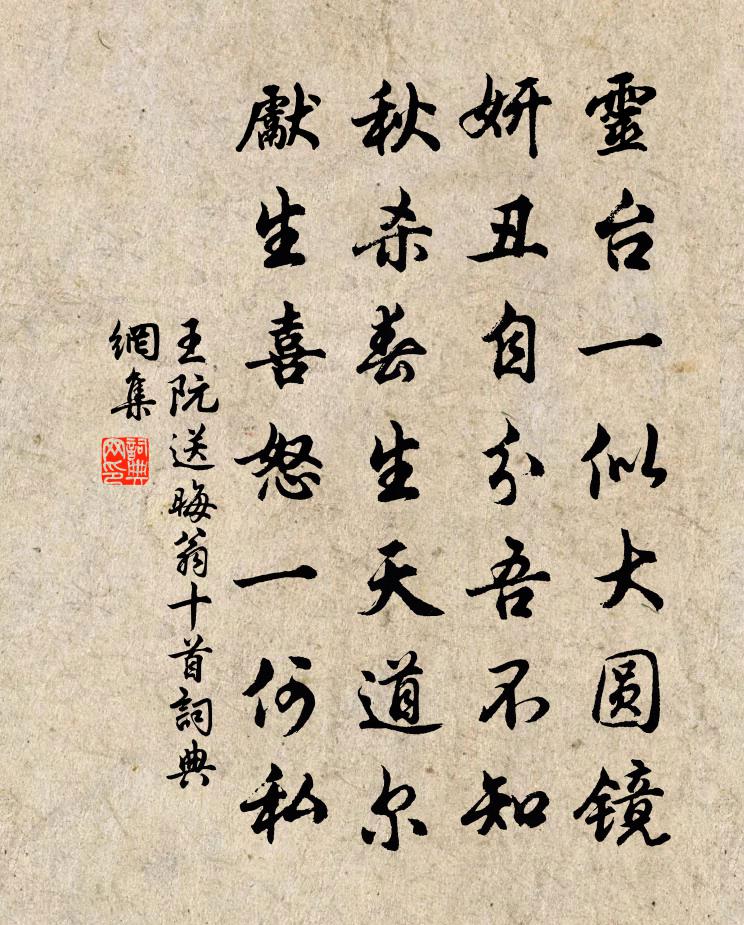 靈台一似大圆镜
妍丑自分吾不知
秋杀春生天道尔
獻生喜怒一何私
王阮送晦翁十首詞典
網集
詞典
网印